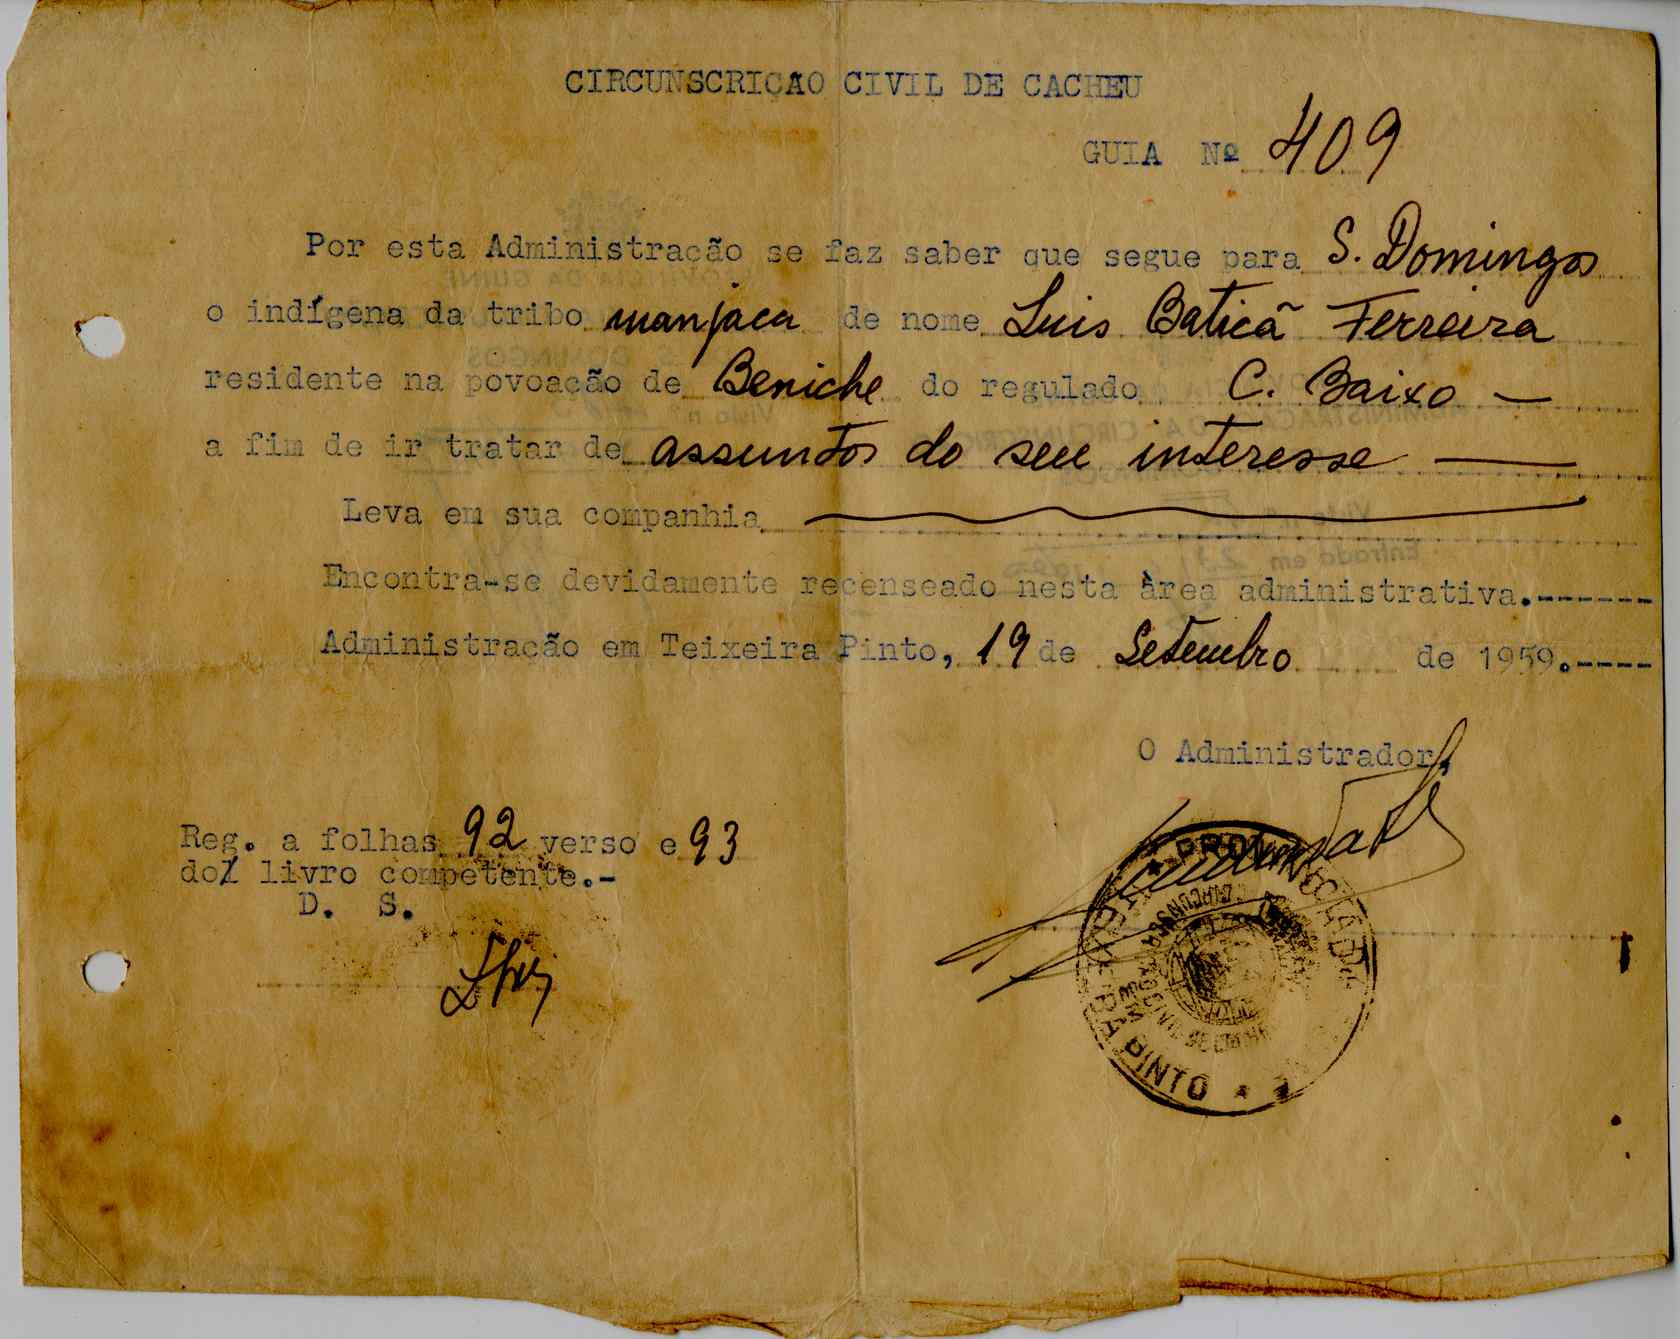 CIRCUNSCRIÇAO CIVIL DE CACHEU
GUIA Nº 409
Por esta Administração se faz saber que segue para S. Domingos
o indígena da tribo manjaca de nome Luis Baticã Ferreira
residente na povoação de Beniche do regulado C. Baixo —
a fim de ir tratar de assuntos do seu interesse —
Leva em sua companhia
Encontra-se devidamente recenseado nesta àrea administrativa.------
Administração em Teixeira Pinto, 19 de Setembro de 1959.----
O Administrador,
Reg. a folhas 92 verso e 93
do livro competente.-
D. S.
PROVINCIA DA
CIRCUNSCRIÇÃO CIVIL DE CACHEU
EM
TEIXEIRA PINTO